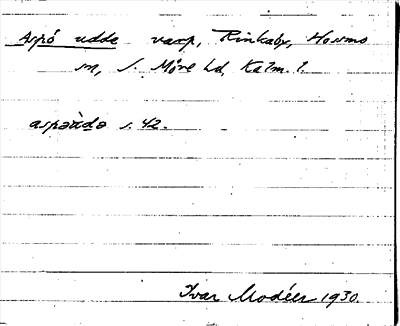 Aspö udde varp, Rinkaby, Hossmo
sn, S. Möre hd, Kalm. l.
aspəùdə s. 42.
Ivar Modéer 1930.